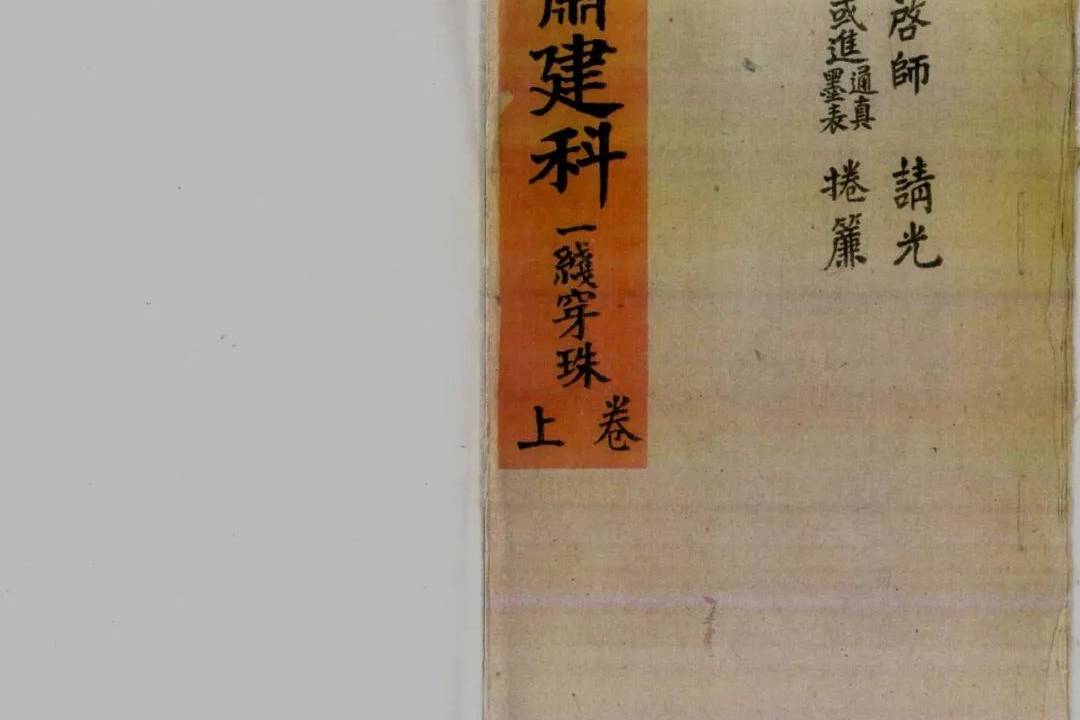 啓師 請光
或進通真墨表 捲簾
建科 一綫穿珠 卷上